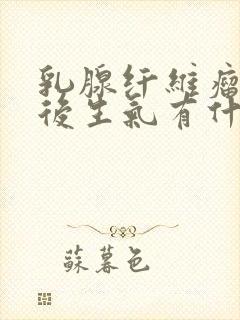 乳腺纤維瘤
後生氣有什
蘇暮色